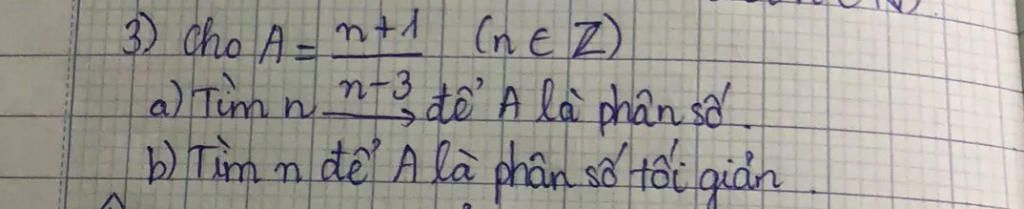 3) Cho A = n+1/n-3 (n ∈ Z)
a) Tìm n để A là phân số.
b) Tìm n để A là phân số tối giản.